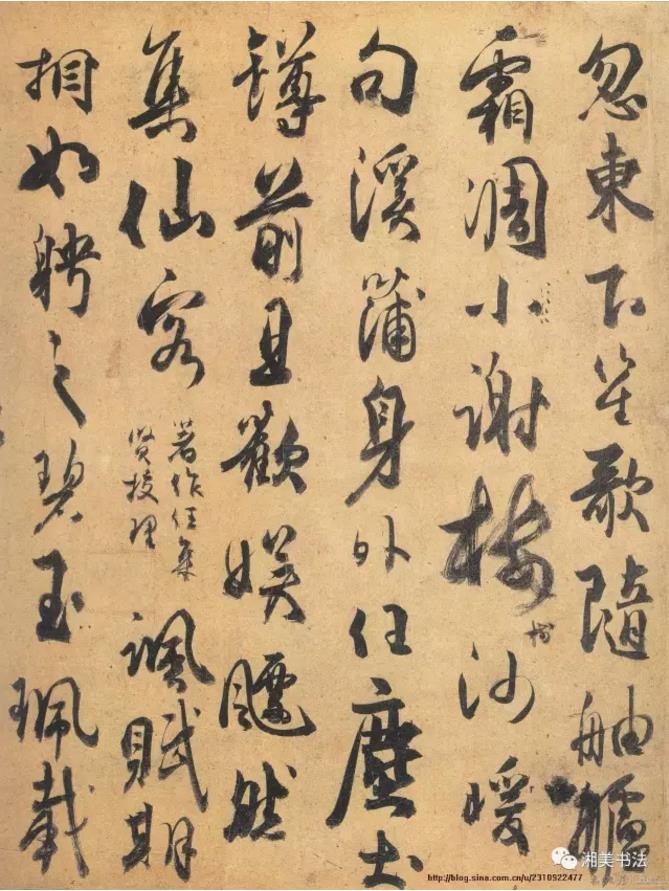 忽東下笙歌隨舳艫
霜凋小謝樓樹沙暖
句溪蒲身外任塵土
罇前且歡娛飄然
集仙客
著作任集
賢校理
諷賦期
相如聘之碧玉珮載
http://blog.sina.com.cn/u/2310922477
湘美书法